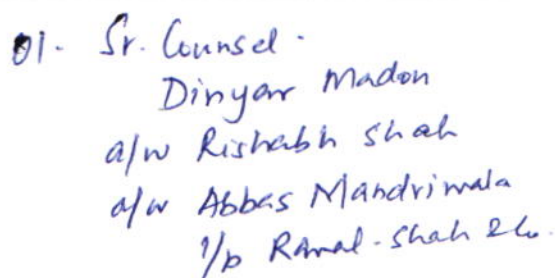 01. Sr. Counsel.
Dinyar Madon
a/w Rishabh Shah
a/w Abbas Mandriwala
i/b Raval-Shah & Co.